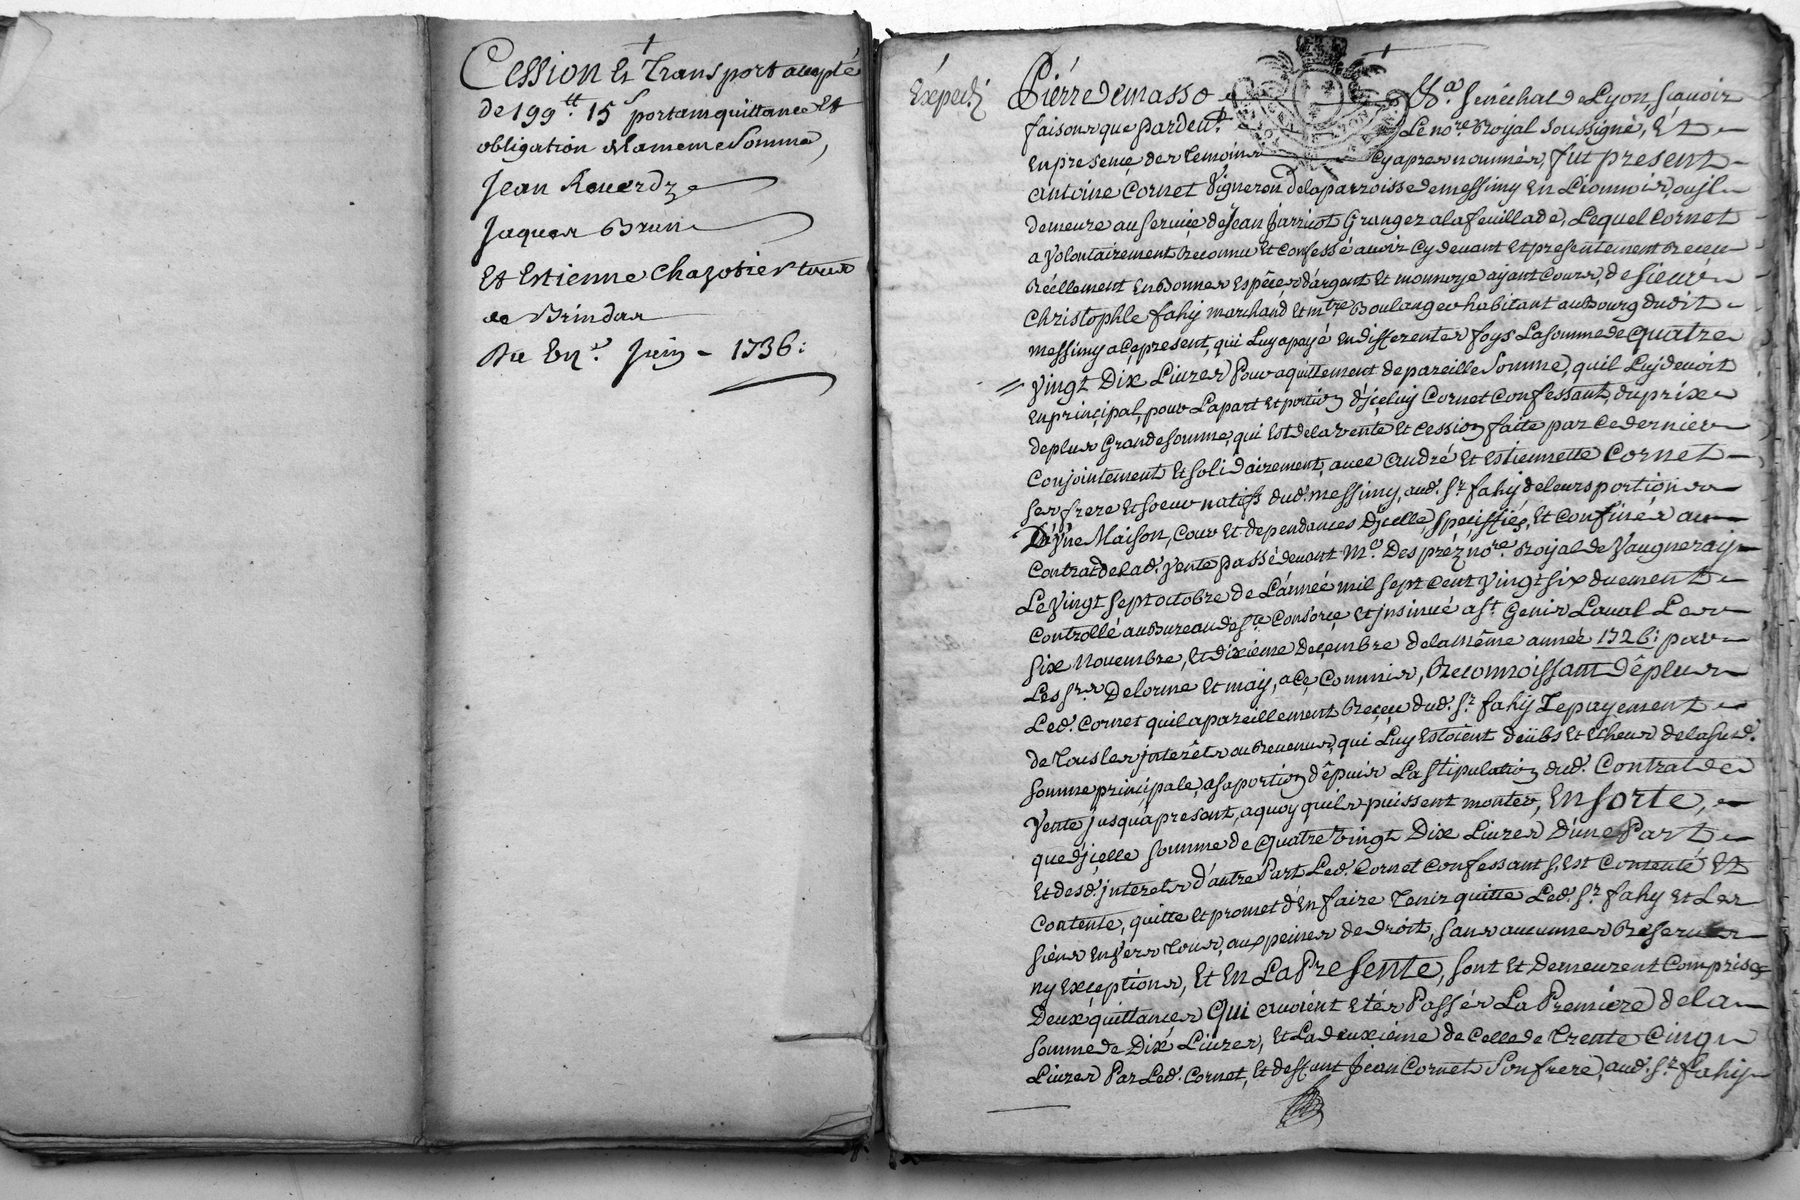 Cession Et Transport accepté
de 199ᵗᵗ 15ˢ portant quittance Et
obligation de la meme Somme,
Jean
Jaques Brun
Et Estienne Chazotier tous
de Brindas
Du Juin 1736:
Expedi
Pierre Demasso Sénéchal de Lyon, scavoir
faisons que pardevt. Le nore. Royal soussigné, Et
En presence des Temoins Cyapres nommés, fut present
Antoine Cornet Vigneron de la parroisse de messimy En Lionnois, ou jl
demeure au service de Jean Jarricot Granger a la feuillade, Lequel Cornet
a Volontairement Reconnu et Confessé avoir Cy devant Et presentement Receu
Réellement En Bonnes Espêces d'argent Et monnoye ayant Cours, de sieur
Christophle fahy marchand Et mtre. Boulanger habitant au Bourg dudit
messimy a ce present, qui Luy a payé En differentes foys La somme de quatre
Vingt Dix Livres Pour aquittement de pareille Somme, quil Luy devoit
En principal, pour La part Et portion d'jceluy Cornet Confessant, du prix
de plus Grande somme, qui Est de la vente Et Cession faite par ce dernier
Conjointement Et solidairement, avec André Et Estiennette Cornet
Ses frere Et soeur natifs dud. messimy, aud. Sr. fahy de leurs portions
D'une Maison, Cour Et dependances D'jcelle, speciffiés, Et Confinés au
Contrat de lad. vente passé devant Me. Despréz nore. Royal de Vaugneray
Le vingt sept octobre de L'année mil sept cent vingt six duement
Controllé au Bureau de Ste. Consorce Et jnsinué a St. Genis Laval Les
six Novembre, Et dixiéme decembre de la même année 1726: par
Les Srs. Delorme Et may, a ce Commis, Reconnoissant dêplus
Led. Cornet quil a pareillement Receu dud. Sr. fahy Le payement
de Tous les jnterêts ou Revenus, qui Luy Estoient deübs Et Echeus de la susd.
somme principale, a sa portion, dêpuis La stipulation dud. Contrat de
Vente jusqu'a present, a quoy quils puissent monter, En sorte,
que d'jcelle somme de Quatre Vingt Dix Livres D'une Part
Et desd. jnterets d'autre Part Led. Cornet Confessant s'Est Contenté Et
Contente, quitte Et promet d'En faire Tenir quitte Led. Sr. fahy Et Les
siens Envers Tous, aux peines de droit, sans aucunes Reserves
ny Exceptions, Et En La Presente, sont Et Demeurent Comprises
Deux quittances Qui avoient Etés Passés La Premiere de la
somme de Dix Livres, Et La deuxiéme de Celle de Trente Cinq
Livres Par Led. Cornet, Et deffunt Jean Cornet Son frere, aud. Sr. fahy